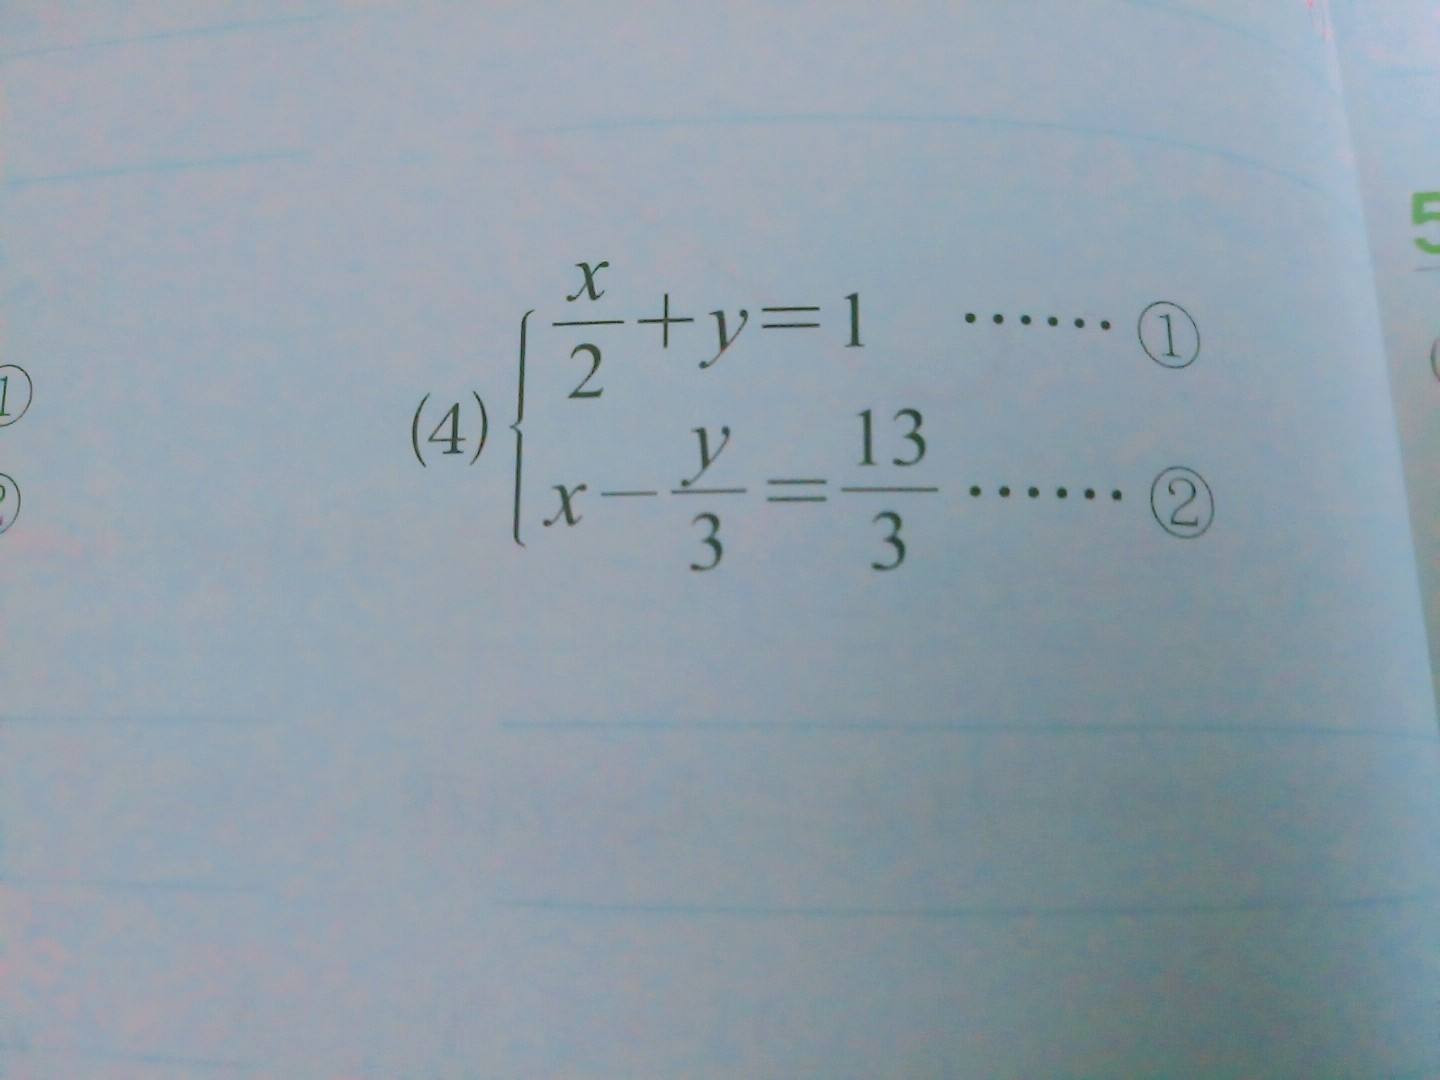 (4) { x/2 + y = 1 ・・・・・・ ①
x − y/3 = 13/3 ・・・・・・ ②
①
②
5